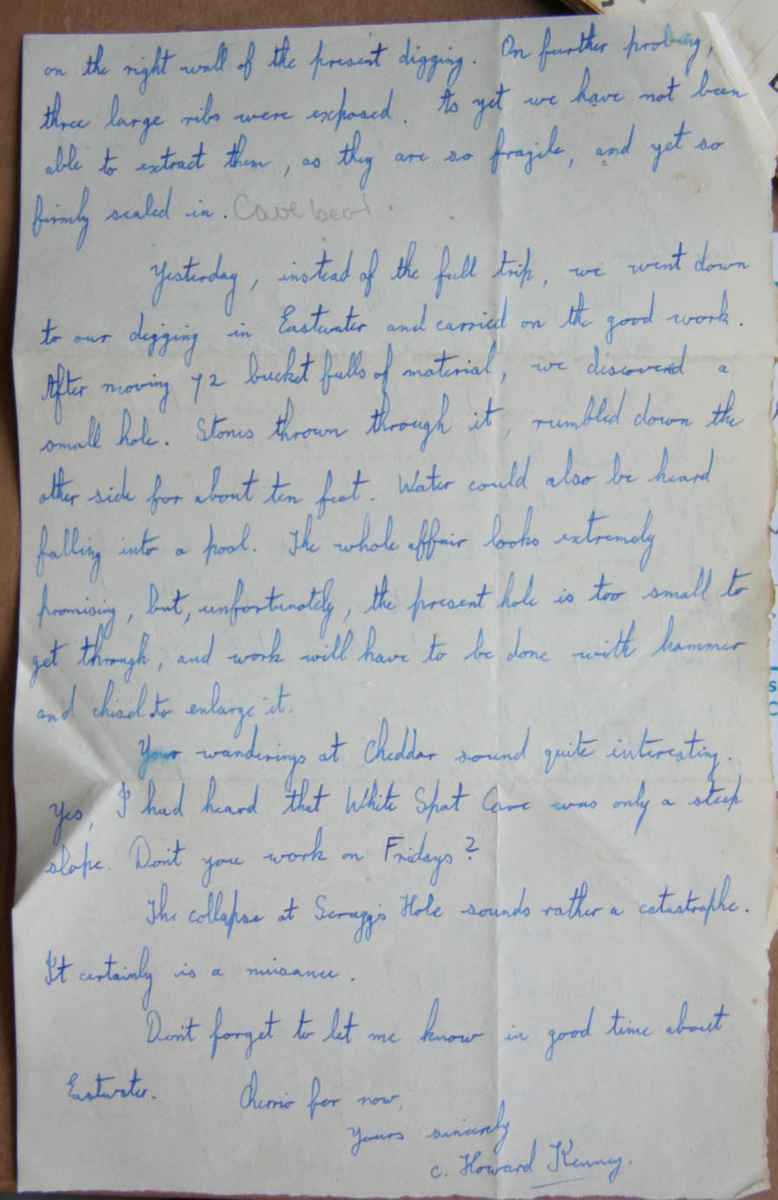 on the right wall of the present digging. On further probing,
three large ribs were exposed. As yet we have not been
able to extract them, as they are so fragile, and yet so
firmly sealed in. Cave bear.
Yesterday, instead of the full trip, we went down
to our digging in Eastwater and carried on the good work.
After moving 72 bucket fulls of material, we discovered a
small hole. Stones thrown through it, rumbled down the
other side for about ten feet. Water could also be heard
falling into a pool. The whole affair looks extremely
promising, but, unfortunately, the present hole is too small to
get through, and work will have to be done with hammer
and chisel to enlarge it.
Your wanderings at Cheddar sound quite interesting.
Yes, I had heard that White Spot Cave was only a steep
slope. Don't you work on Fridays?
The collapse at Scragg's Hole sounds rather a catastrophe.
It certainly is a nuisance.
Don't forget to let me know in good time about
Eastwater. Cherrio for now,
Yours sincerely
C. Howard Kenney.